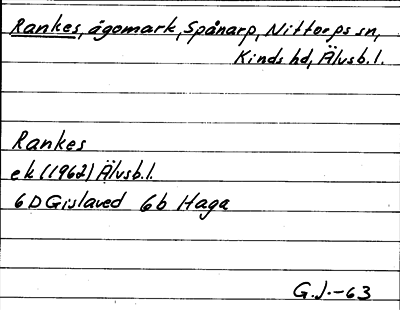 Rankes, ägomark, Spånarp, Nittorps sn,
Kinds hd, Älvsb.l.
Rankes
ek (1962) Älvsb.l.
6D Gislaved 6b Haga
G.J.-63